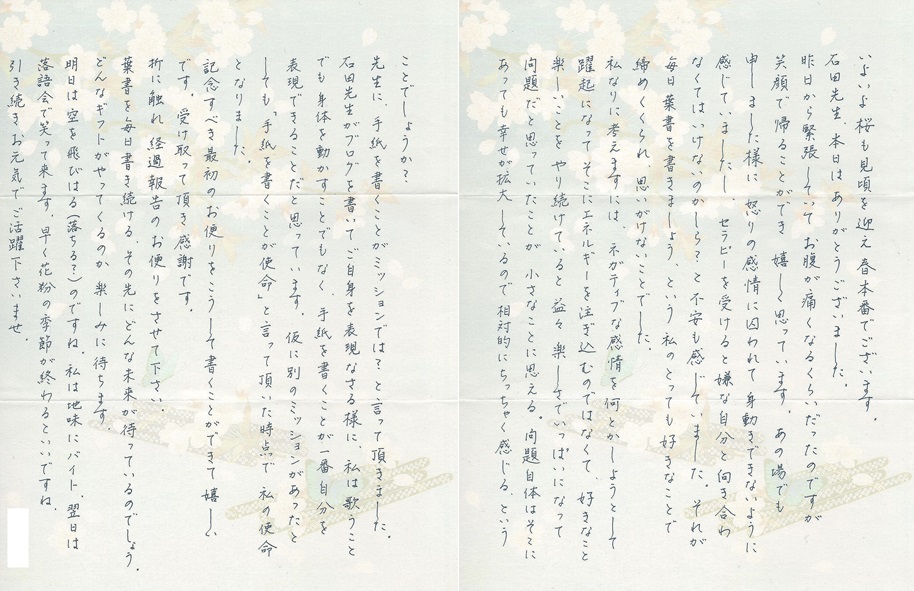 いよいよ桜も見頃を迎え春本番でございます。
石田先生、本日はありがとうございました。
昨日から緊張していてお腹が痛くなるくらいだったのですが
笑顔で帰ることができ嬉しく思っています。あの場でも
申しました様に怒りの感情に囚われて身動きできないように
感じていましたし、セラピーを受けると嫌な自分と向き合わ
なくてはいけないのかしら?と不安も感じていました。それが
毎日葉書を書きましょうという私のとっても好きなことで
締めくくられ、思いがけないことでした。
私なりに考えますには、ネガティブな感情を何とかしようとして
躍起になってそこにエネルギーを注ぎ込むのではなくて、好きなこと
楽しいことをやり続けていると益々楽しさでいっぱいになって
問題だと思っていたことが小さなことに思える。問題自体はそこに
あっても幸せが拡大しているので相対的にちっちゃく感じる、という
ことでしょうか?
先生に、手紙を書くことがミッションでは?と言って頂きました。
石田先生がブログを書いてご自身を表現なさる様に、私は歌うこと
でも身体を動かすことでもなく、手紙を書くことが一番自分を
表現できることだと思っています。仮に別のミッションがあったと
しても、「手紙を書くことが使命」と言って頂いた時点で私の使命
となりました。
記念すべき最初のお便りをこうして書くことができて嬉しい
です。受け取って頂き感謝です。
折に触れ経過報告のお便りをさせて下さい。
葉書を毎日書き続ける、その先にどんな未来が待っているのでしょう。
どんなギフトがやってくるのか楽しみに待ちます。
明日は空を飛びはる(落ちる?)のですね。私は地味にバイト、翌日は
落語会で笑って来ます。早く花粉の季節が終わるといいですね。
引き続きお元気でご活躍下さいませ。